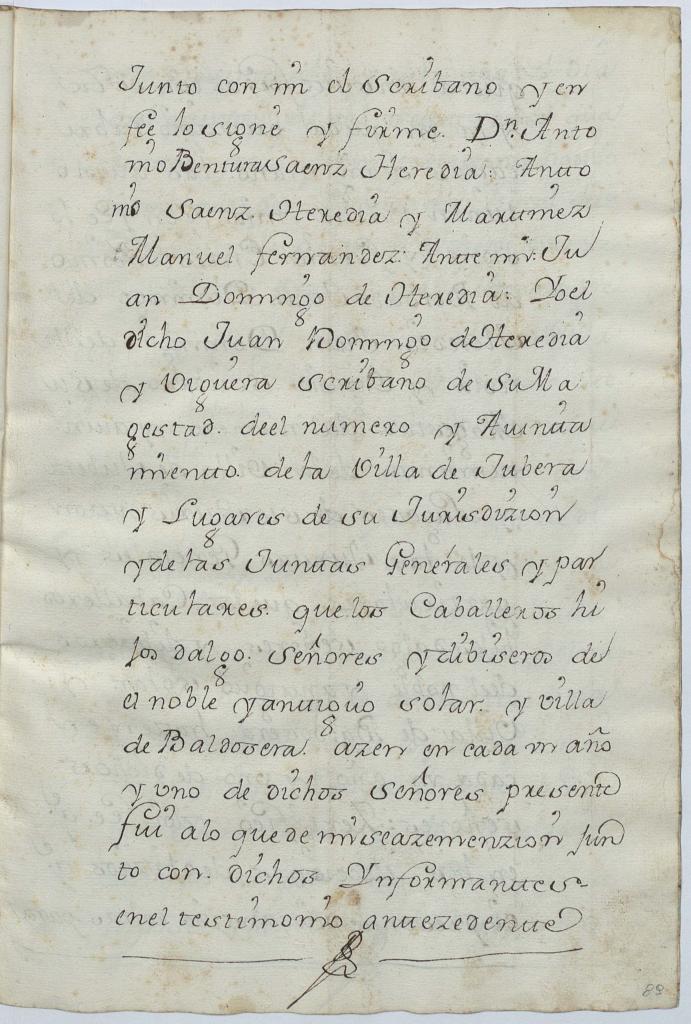 Junto con mi el Scribano y en
fee lo signe y firme. Dn. Anto
nio Bentura Saenz Heredia: Antto
nio Saenz. Heredia y Marttinez
Manuel fernandez: Antte mi: Ju
an Domingo de Heredia: Yo el
dicho Juan Domingo de Heredia
y Viguera Scribano de Su Ma
gestad. deel numero y Aiuntta
mientto. de la Villa de Jubera
y Lugares de su Jurisdizion
y de las Junttas Generales y par
ticulares. que los Caballeros hi
jos dalgo. Señores y dibiseros de
el noble y anttiguo solar. y villa
de Baldosera. azen en cada un año
y uno de dichos Señores presente
fui a lo que de mi se aze menzion jun
to con. dichos Ynformanttes-
en el testimonio anttezedentte
89